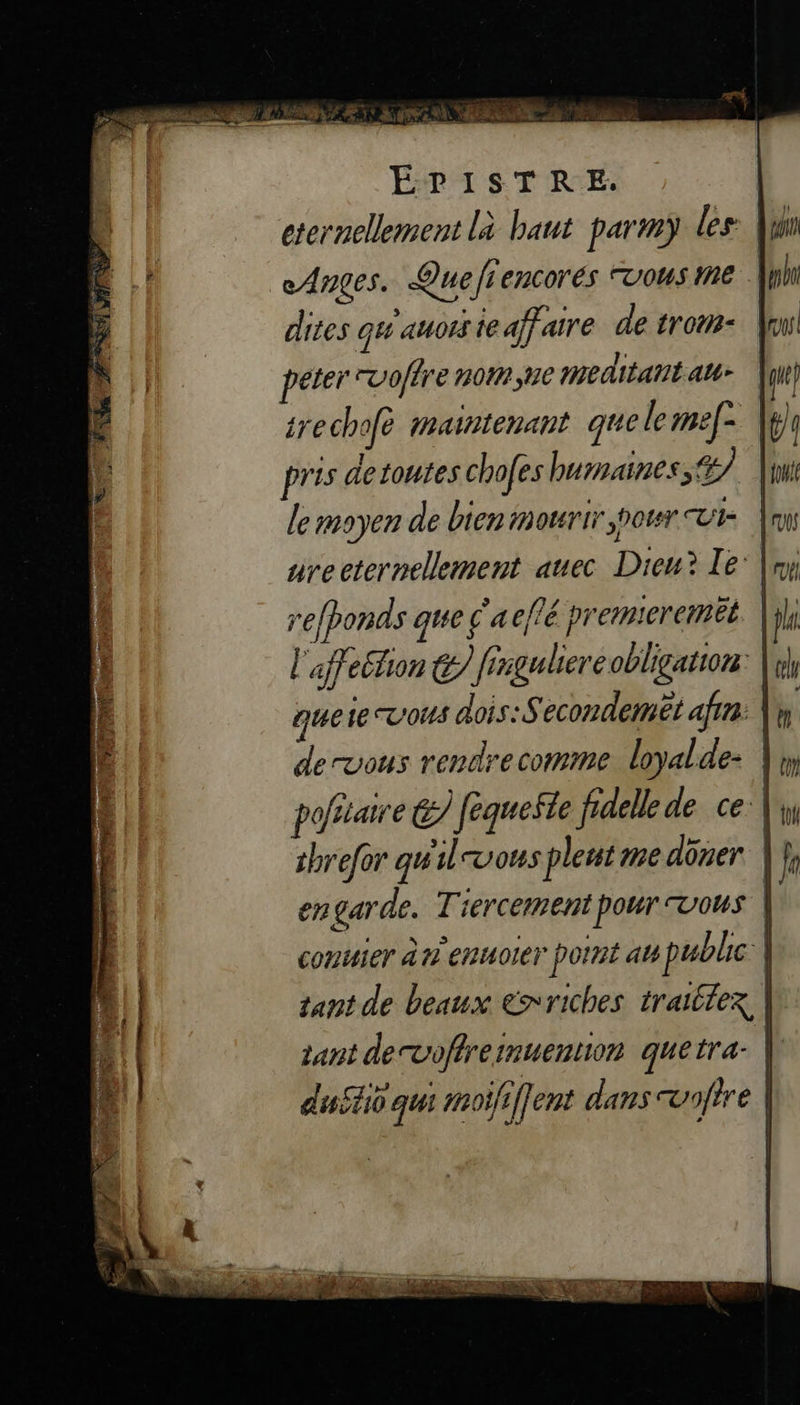 EPISTRE.
eternellement là haut parmy les
Anges. Que ſi encorés vous me
dites qu'auois ie affaire de trom-
peter voſtre nom, ne meditant au-
tre choſe maintenant que le meſ-
pris de toutes choſes humaines, &
le moyen de bien mourir, pour vi-
ure eternellement auec Dieu? Ie
reſponds que ç'a eſté premieremēt
l'affection & ſinguliere obligation
que ie vous dois: Secondemēt afin
de vous rendre comme loyal de-
poſitaire & ſequeſte fidelle de ce
threſor qu'il vous pleut me dōner
en garde. Tiercement pour vous
conuier à n'enuoier point au public
tant de beaux & riches traictez
tant de voſtre inuention que tra-
ductiō qui moiſiſſent dans voſtre